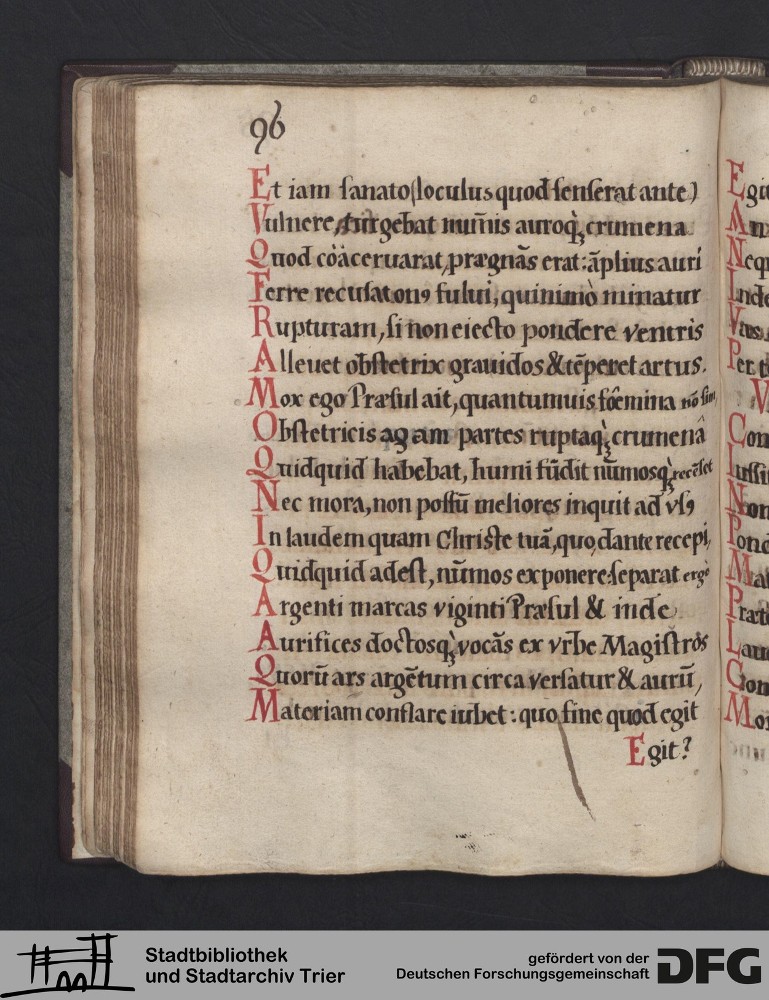 96
Et iam sanato (loculus quod senserat ante)
Vulnere, turgebat num̃is auroq̀ꝫ crumena
Quod còàceruarat, prægnãs erat: ãplius auri
Ferre recusat onꝰ fului, quinimò minatur
Rupturam, si non eiecto pondere ventris
Alleuet obstetrix grauidos & tẽperet artus.
Mox ego Præsul ait, quantumuis fœ̂mina nõ sim,
Obstetricis agam partes ruptaq̀ꝫ crumenâ
Quidquid habebat, humi fũdit nũmosq̀ꝫ recẽset
Nec mora, non possũ meliores inquit ad vsꝰ
In laudem quam Christe tuã, quo dante recepi,
Quidquid adest, nũmos exponere: separat ergò
Argenti marcas viginti Præsul & inde
Aurifices doctosq̀ꝫ vocãs ex vrbe Magistros
Quorũ ars argẽtum circa versatur & aurũ,
Materiam conflare iubet: quo fine quod egit
Egit?
Egi
An
Neq
Inde
Vas
Per
V
Con
Iussi
Non
Pond
Mat
Præt
Lau
Com
Mox
Stadtbibliothek
und Stadtarchiv Trier
gefördert von der
Deutschen Forschungsgemeinschaft
DFG